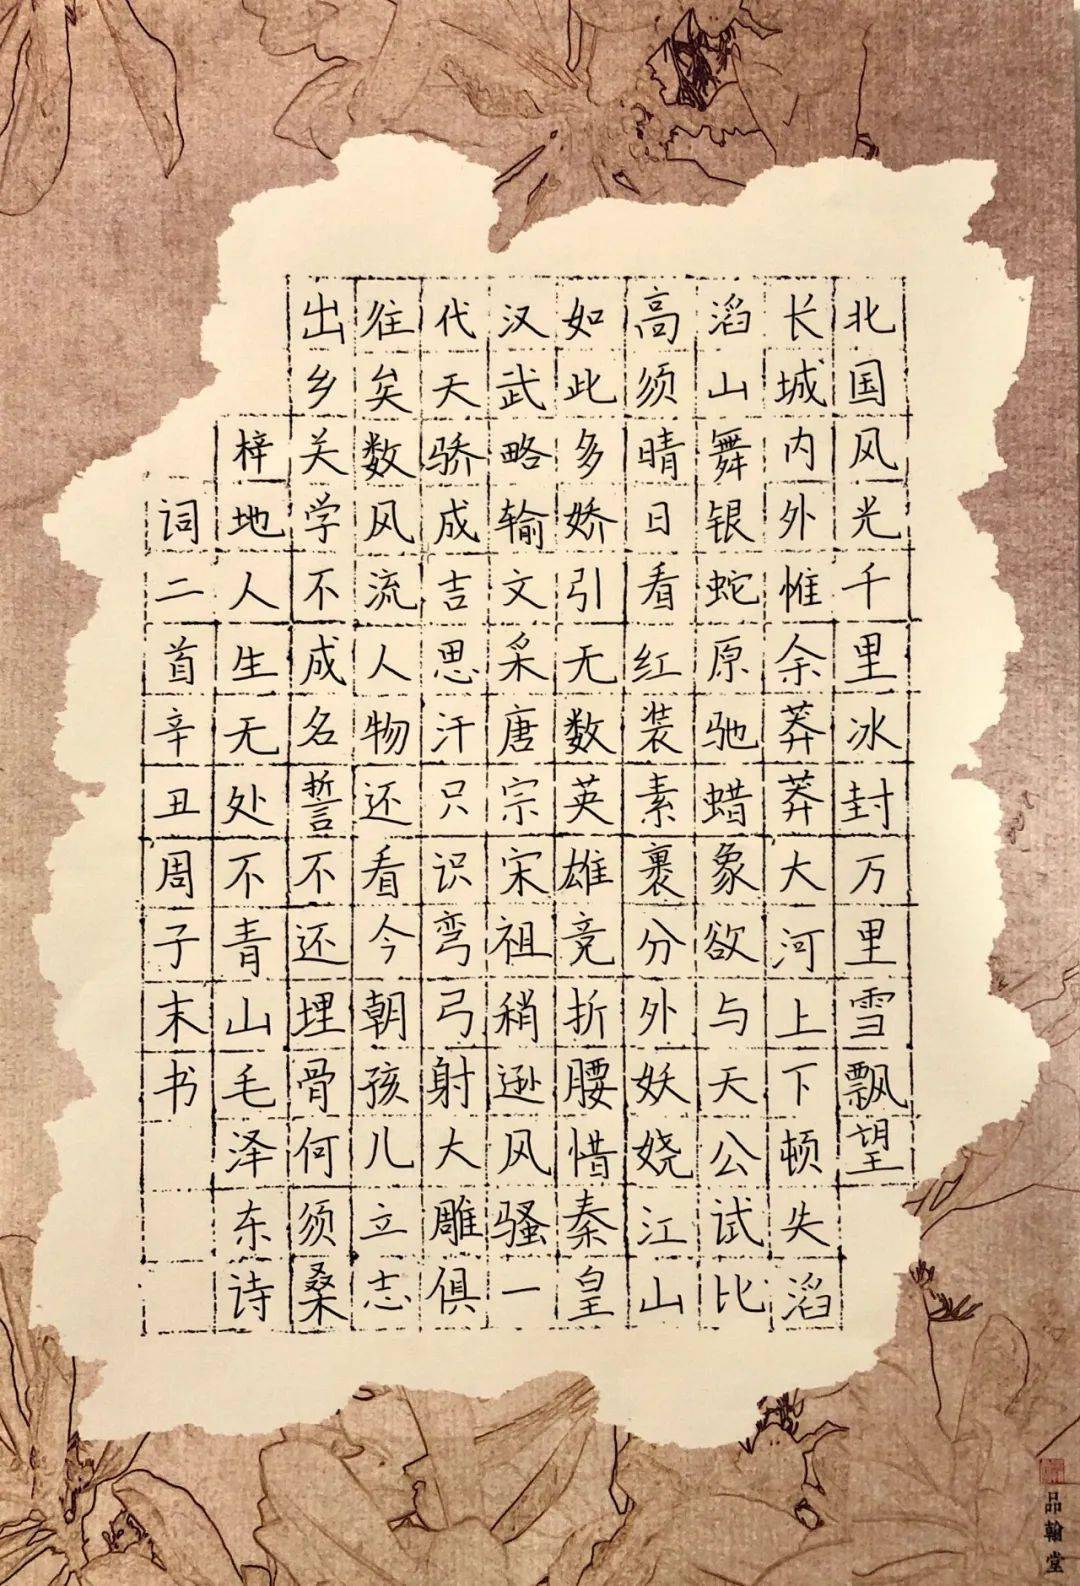 北国风光千里冰封万里雪飘望
长城内外惟余莽莽大河上下顿失滔
滔山舞银蛇原驰蜡象欲与天公试比
高须晴日看红装素裹分外妖娆江山
如此多娇引无数英雄竞折腰惜秦皇
汉武略输文采唐宗宋祖稍逊风骚一
代天骄成吉思汗只识弯弓射大雕俱
往矣数风流人物还看今朝孩儿立志
出乡关学不成名誓不还埋骨何须桑
梓地人生无处不青山毛泽东诗
词二首辛丑周子末书
品翰堂